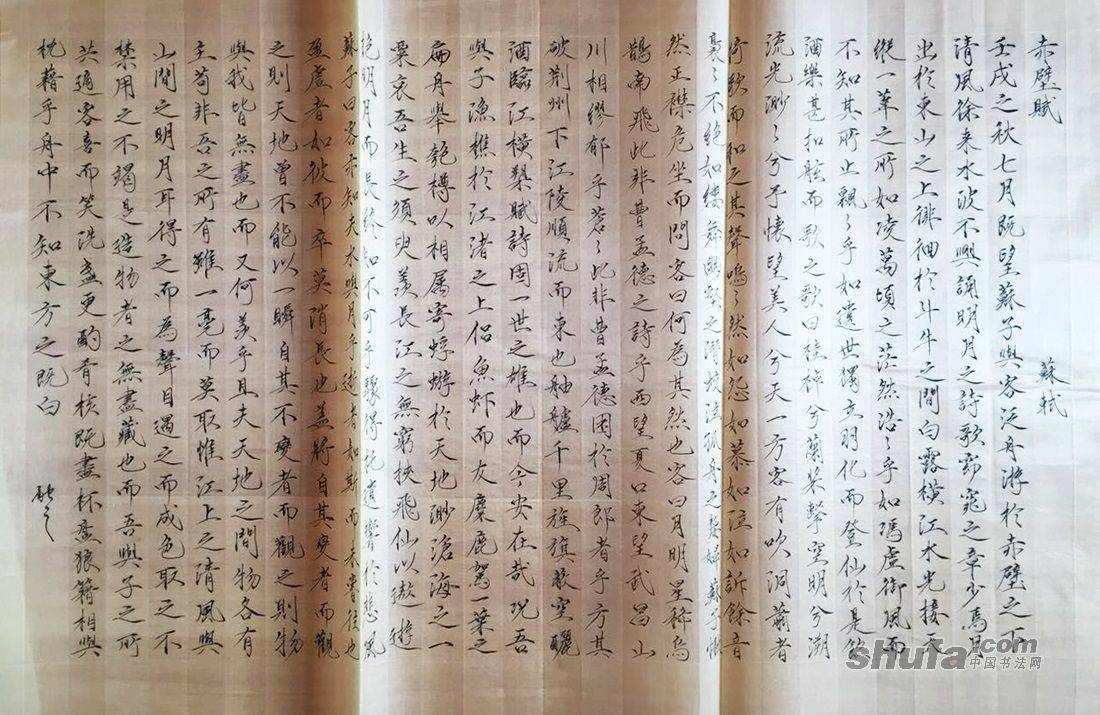 赤壁賦 蘇軾
壬戌之秋七月既望蘇子與客泛舟游於赤壁之下
清風徐来水波不興誦明月之詩歌窈窕之章少焉月
出於東山之上徘徊於斗牛之間白露横江水光接天
縱一葦之所如凌萬頃之茫然浩〻乎如馮虚御風而
不知其所止飄〻乎如遺世獨立羽化而登仙於是飲
酒樂甚扣舷而歌之歌曰桂棹兮蘭槳擊空明兮溯
流光渺〻兮予懷望美人兮天一方客有吹洞簫者
倚歌而和之其聲嗚〻然如怨如慕如泣如訴餘音
裊〻不絕如缕舞幽壑之潛蛟泣孤舟之嫠婦蘇子愀
然正襟危坐而問客曰何為其然也客曰月明星稀烏
鵲南飛此非曹孟德之詩乎西望夏口東望武昌山
川相繆郁乎蒼〻此非曹孟德困於周郎者乎方其
破荆州下江陵順流而東也舳艫千里旌旗蔽空釃
酒臨江横槊賦詩固一世之雄也而今安在哉况吾
與子漁樵於江渚之上侣魚虾而友麋鹿駕一葉之
扁舟舉匏樽以相属寄蜉蝣於天地渺滄海之一
粟哀吾生之須臾羨長江之無窮挾飛仙以遨遊
抱明月而長終知不可乎驟得托遺響於悲風
蘇子曰客亦知夫水與月乎逝者如斯而未嘗往也
盈虚者如彼而卒莫消長也盖將自其變者而觀
之則天地曾不能以一瞬自其不變者而觀之則物
與我皆無盡也而又何羨乎且夫天地之間物各有
主苟非吾之所有雖一毫而莫取惟江上之清風與
山間之明月耳得之而為聲目遇之而成色取之不
禁用之不竭是造物者之無盡藏也而吾與子之所
共適客喜而笑洗盞更酌肴核既盡杯盤狼籍相與
枕藉乎舟中不知東方之既白
shufa.com
中国书法网